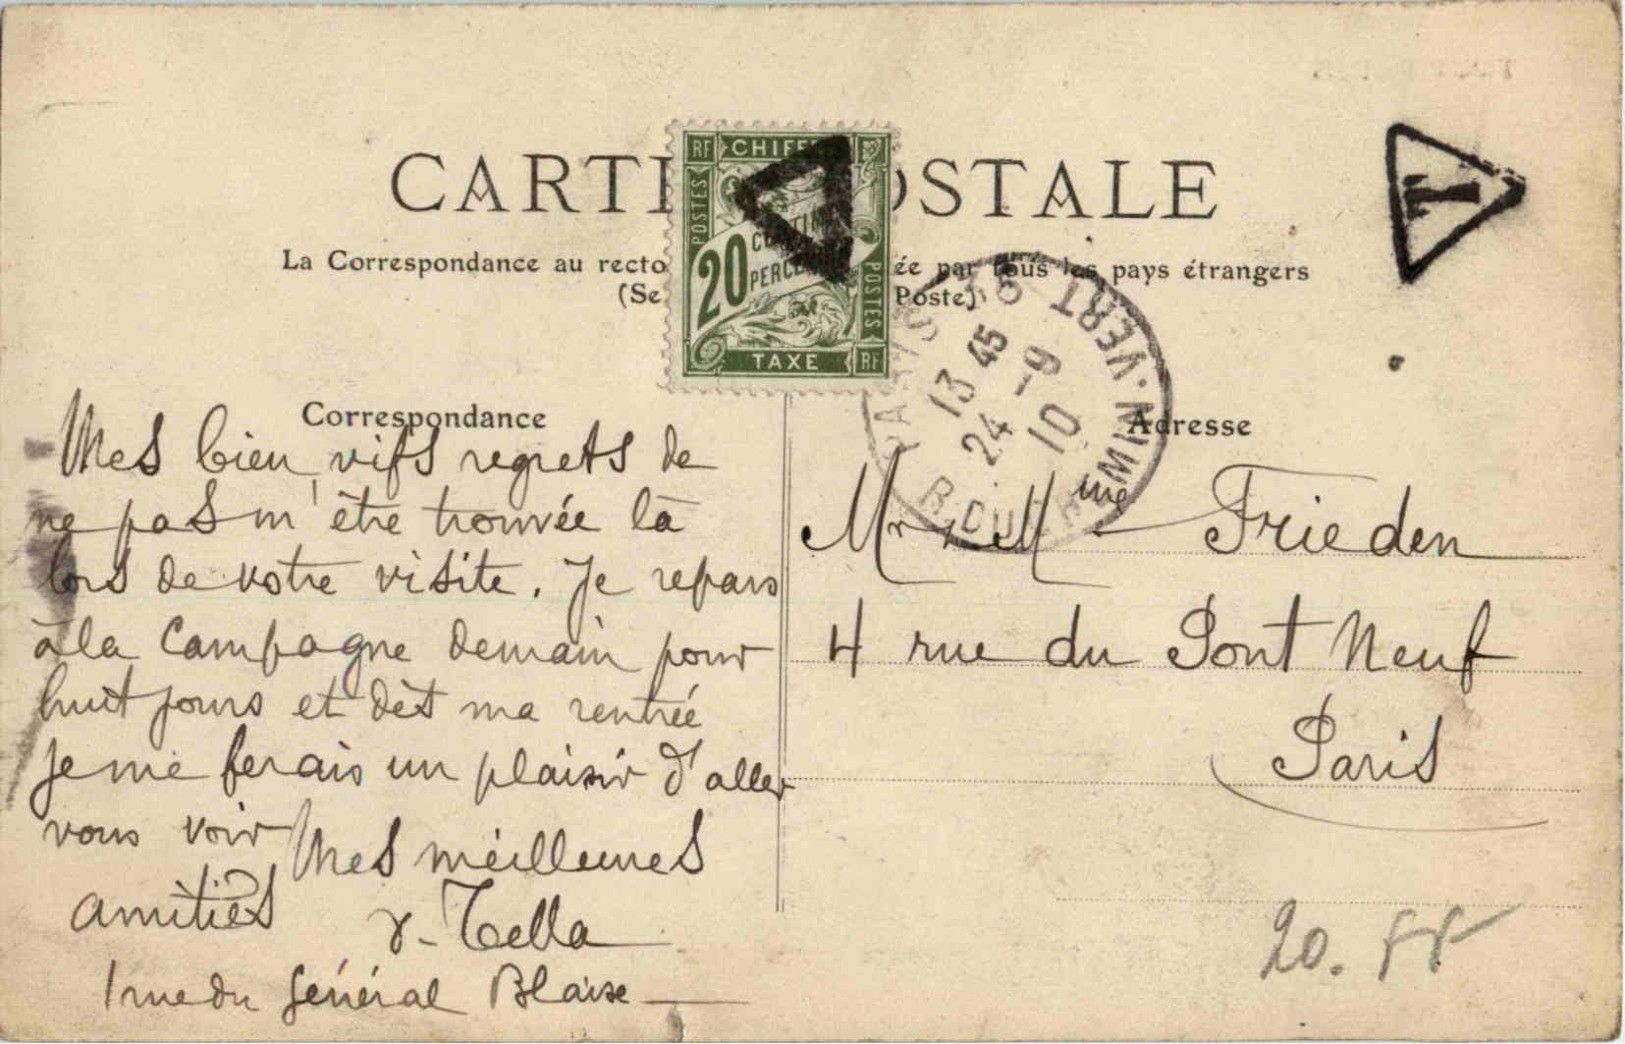 CARTE POSTALE
La Correspondance au recto ée par tous les pays étrangers
(Se Poste)
RF CHIFF
POSTES
20 CENTIM
PERCEVOIR
POSTES
TAXE RF
T
PARIS 
13 45
24 - 9
10
R. DU CHEMIN-VERT
Correspondance
Adresse
Mes bien vifs regrets de
ne pas m'être trouvée là
lors de votre visite. Je repars
à la Campagne demain pour
huit jours et dès ma rentrée
je me ferais un plaisir d'aller
vous voir Mes meilleures
amitiés
Tella
1 rue du Général Blaise
Mr & Mme Frieden
4 rue du Pont Neuf
Paris
20.